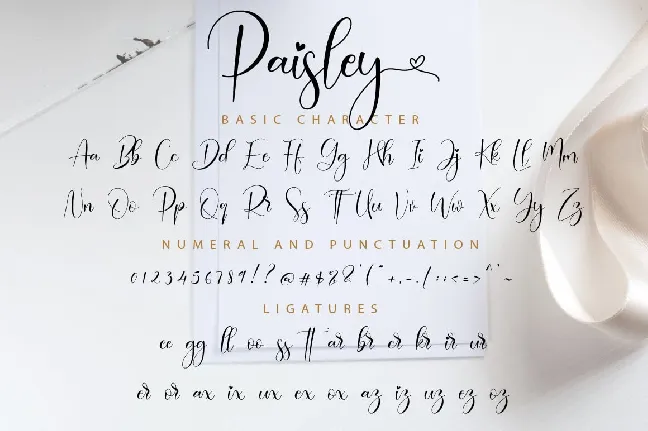 Paisley
BASIC CHARACTER
Aa Bb Cc Dd Ee Ff Gg Hh Ii Jj Kk Ll Mm
Nn Oo Pp Qq Rr Ss Tt Uu Vv Ww Xx Yy Zz
NUMERAL AND PUNCTUATION
0123456789!? @#$&
LIGATURES
ee gg ll oo ss tt ar br cr kr ir ur
er or ax ix ux ex ox az iz uz ez oz